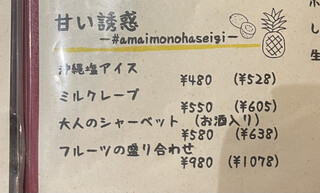 甘い誘惑
—#amaimonohaseigi—
沖縄塩アイス
¥480 (¥528)
ミルクレープ
¥550 (¥605)
大人のシャーベット (お酒入り)
¥580 (¥638)
フルーツの盛り合わせ
¥980 (¥1078)